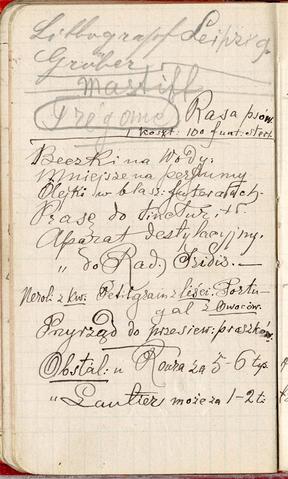 Lithograf Leipzig.
Gruber
Mastiff
Trégomé Rasa psów.
1 koszt: 100 funt. sterl.
Beczki na Wody.
Mniejsze na perfumy
Olejki w blasz:
Prasę do tinctur. +5.
Aparat destylacyjny.
" do Rad.
Neroli z kw. Petitgrain z liści. Portu-
gal z Owoców.
Przyrząd do przesiew: praszków.
Obstal: u Roura za 5-6 tys.
" Lautier może za 1-2 t: